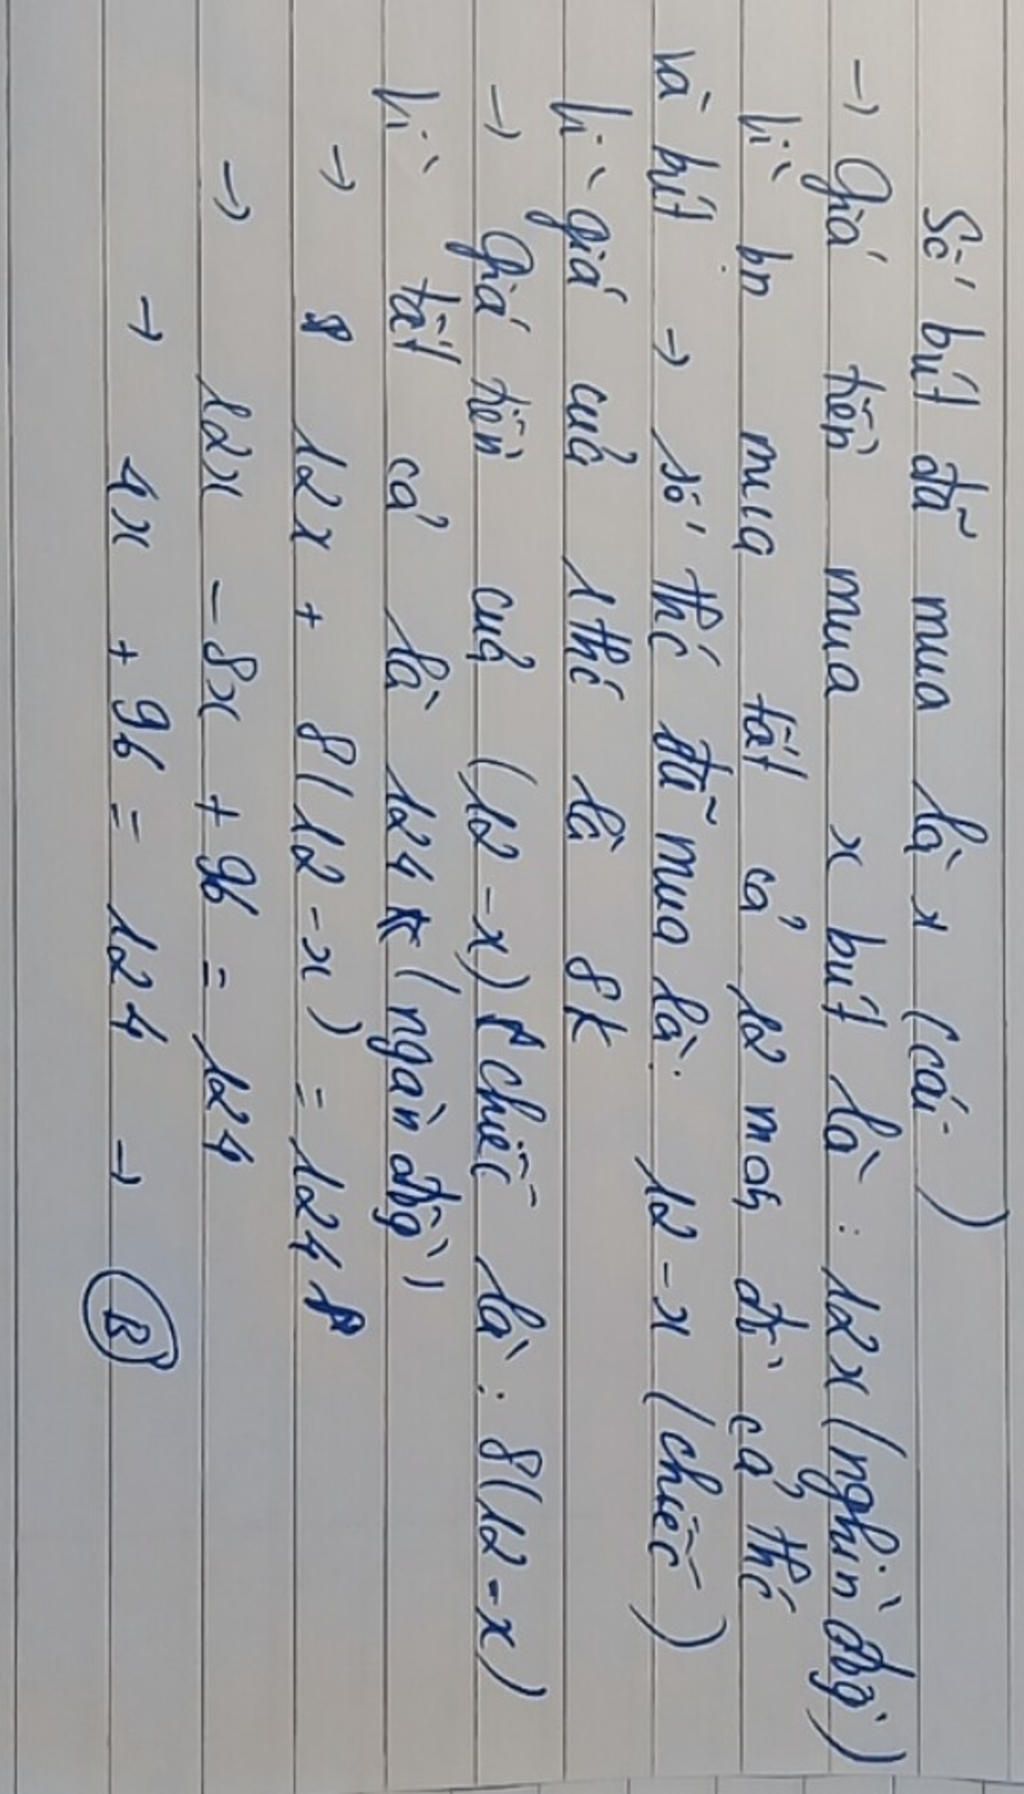 Số bút đã mua là x (cái)
→ Giá tiền mua x bút là : 12x (nghìn đồg)
Vì bn mua tất cả 12 món đồ cả thc
và bút → số thc đã mua là: 12 - x (chiếc)
Vì giá của 1 thc là 8k
→ Giá tiền của (12 - x) chiếc là : 8(12 - x)
Vì tất cả là 124 (ngàn đồg)
→ 12x + 8(12 - x) = 124
→ 12x - 8x + 96 = 124
→ 4x + 96 = 124 → B